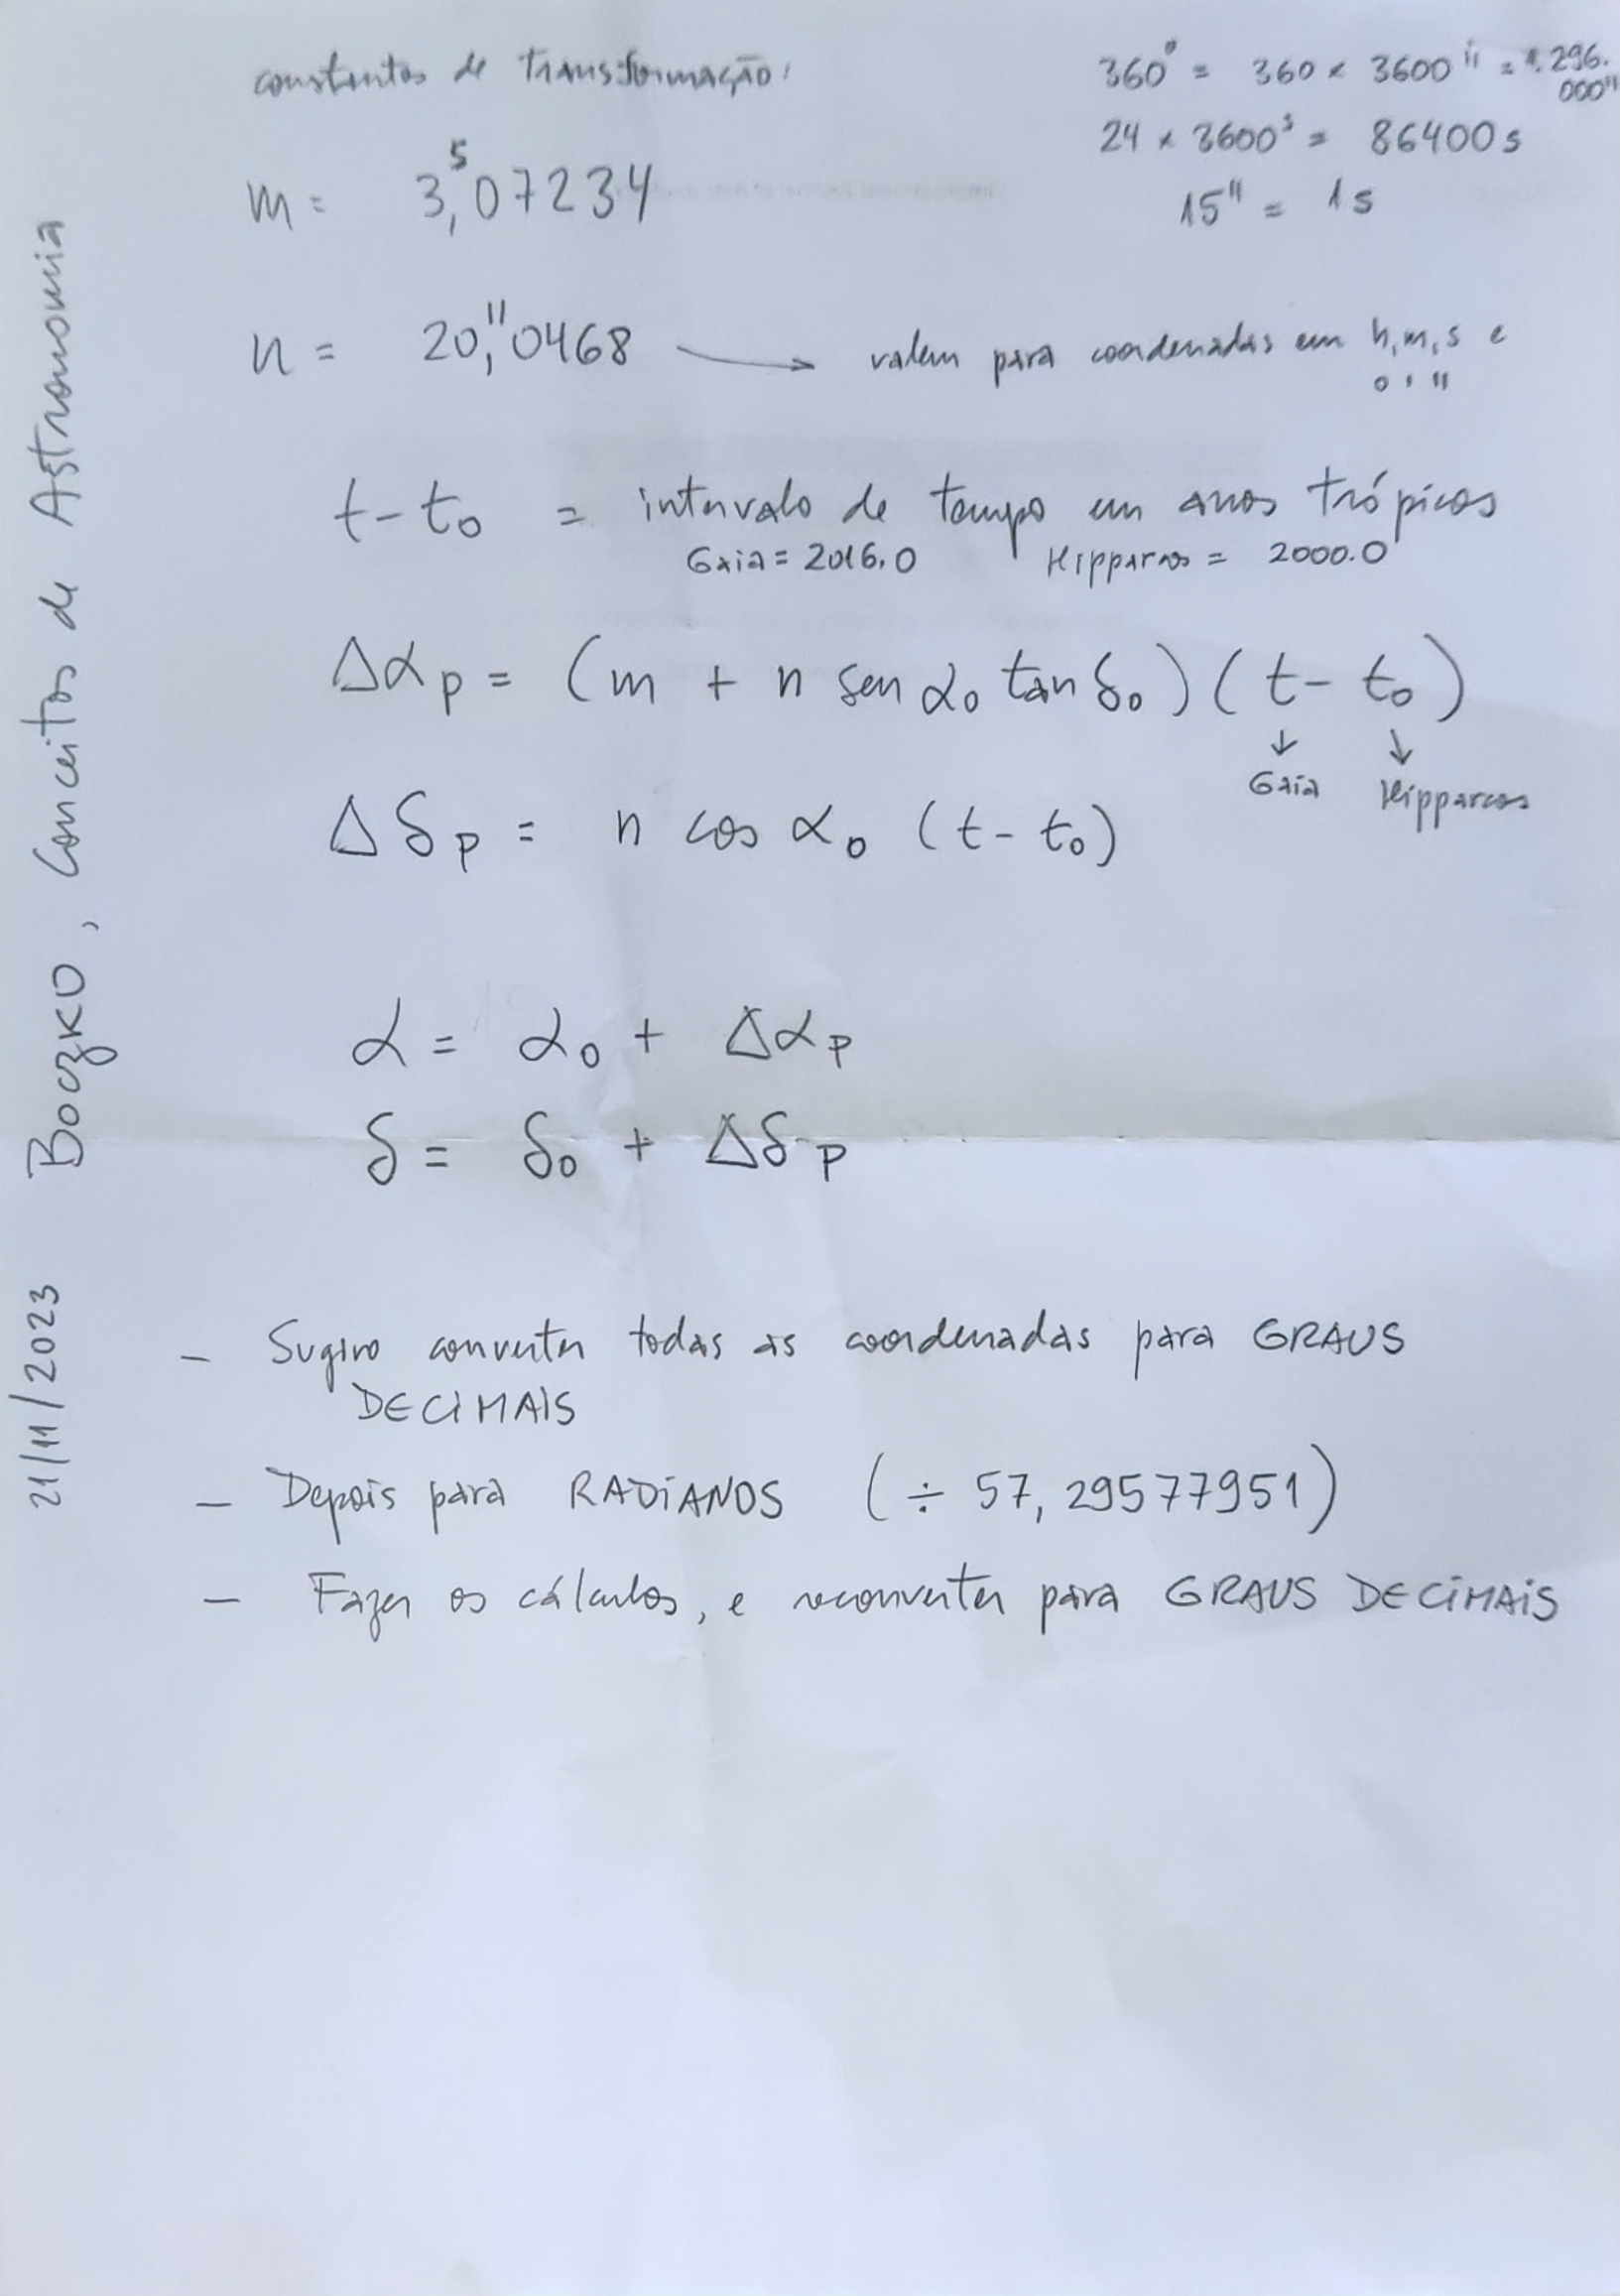 constantes de transformação:
360° = 360 × 3600" = 1.296.
000"
24 × 3600ˢ = 86400 s
15" = 1s
m = 3,ˢ07234
n = 20,"0468 → valem para coordenadas em h, m, s e
° ' "
t - t₀ = intervalo de tempo em anos trópicos
Gaia = 2016.0 Hipparcos = 2000.0
Δαp = (m + n sen α₀ tan δ₀) (t - t₀)
↓ ↓
Gaia Hipparcos
Δδp = n cos α₀ (t - t₀)
α = α₀ + Δαp
δ = δ₀ + Δδp
- Sugiro converter todas as coordenadas para GRAUS
DECIMAIS
- Depois para RADIANOS (÷ 57,29577951)
- Fazer os cálculos, e reconverter para GRAUS DECIMAIS
21/11/2023 Boczko, Conceitos de Astronomia